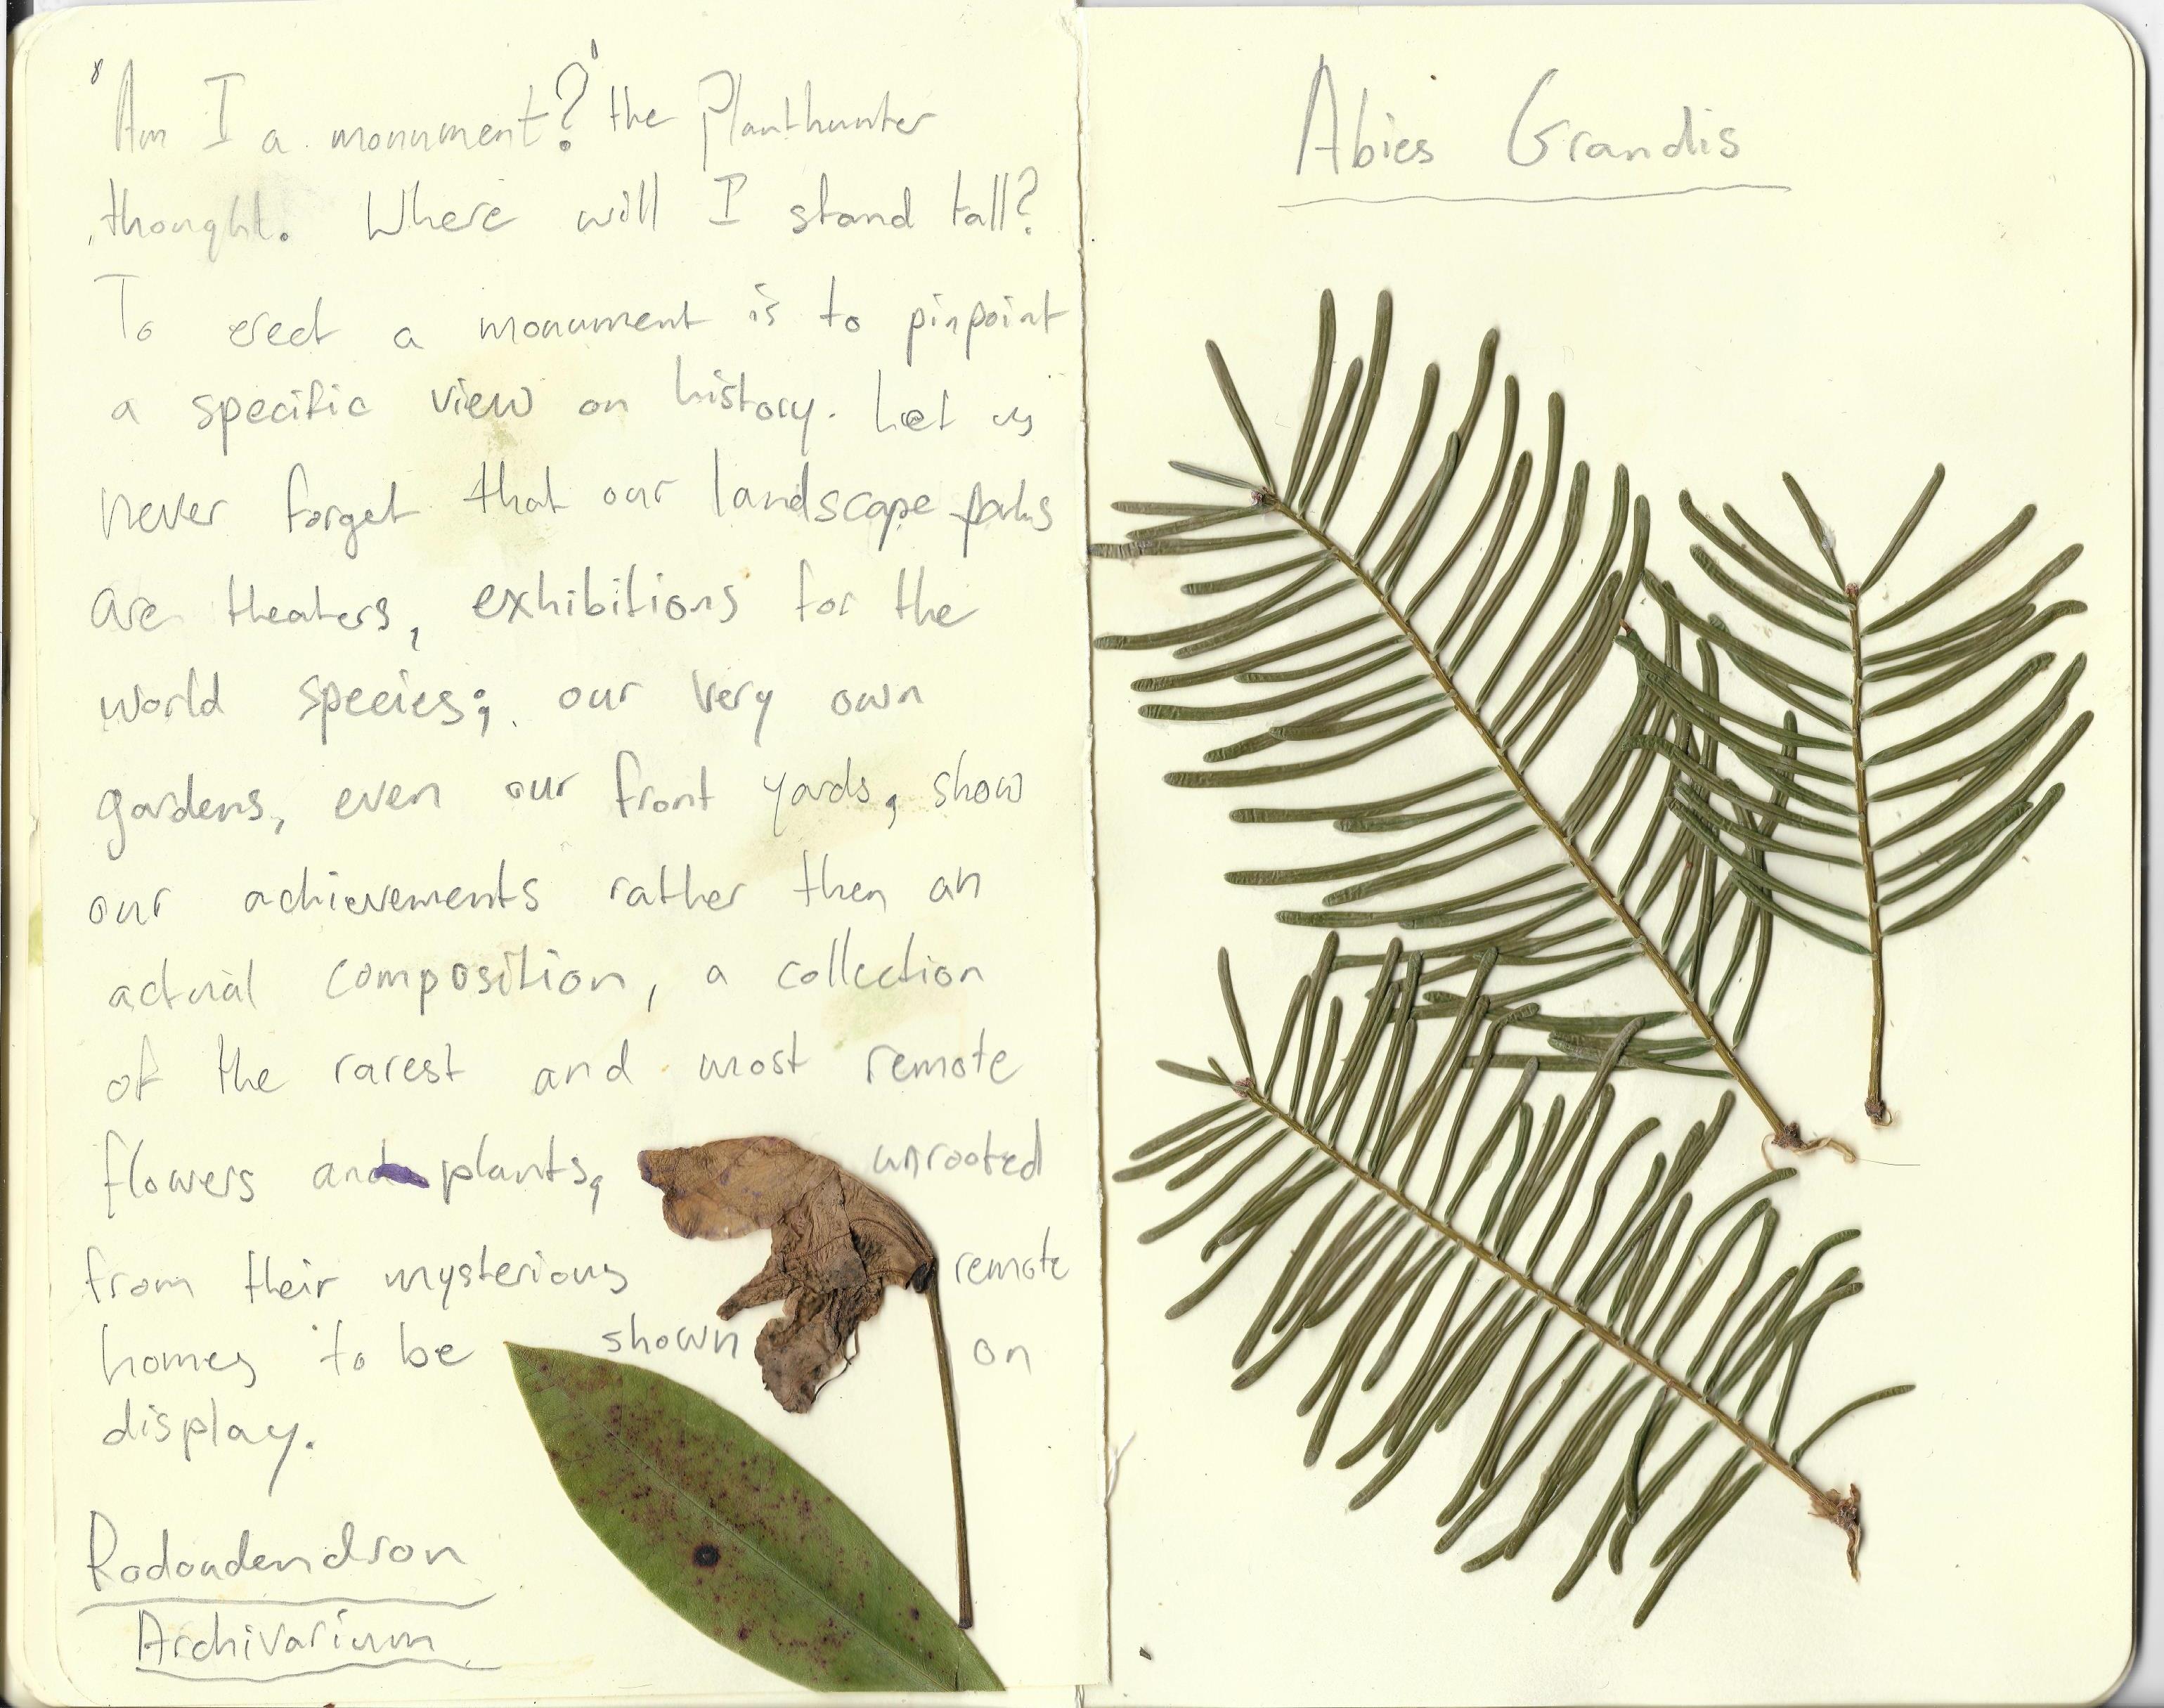 'Am I a monument?' the Planthunter
thought. Where will I stand tall?
To erect a monument is to pinpoint
a specific view on history. Let us
never forget that our landscape parks
are theaters, exhibitions for the
world species; our very own
gardens, even our front yards, show
our achievements rather then an
actual composition, a collection
of the rarest and most remote
flowers and plants, unrooted
from their mysterious remote
homes to be shown on
display.
Rodondendron
Archivarium
Abies Grandis